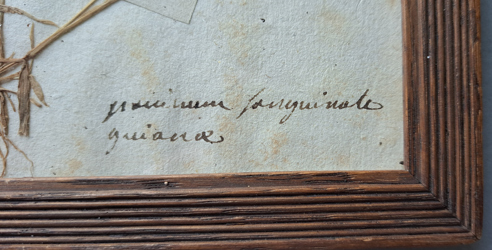 panicum sanguinale
guiane